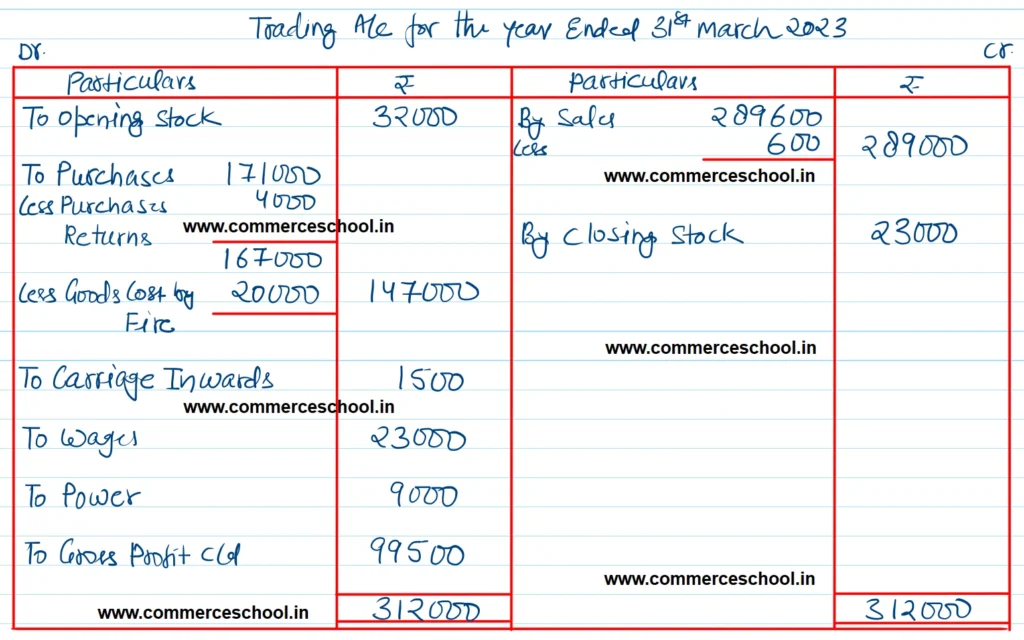 Trading A/c for the year Ended 31st March 2023
Dr. Cr.
Particulars ₹ Particulars ₹
To Opening Stock 32000 By Sales 289600
Less 600 289000
To Purchases 171000 www.commerceschool.in
Less Purchases 4000
Returns www.commerceschool.in By Closing Stock 23000
167000
Less Goods Lost by 20000 147000
Fire
www.commerceschool.in
To Carriage Inwards 1500
www.commerceschool.in
To Wages 23000
To Power 9000
To Gross Profit c/d 99500
www.commerceschool.in
www.commerceschool.in 312000 312000